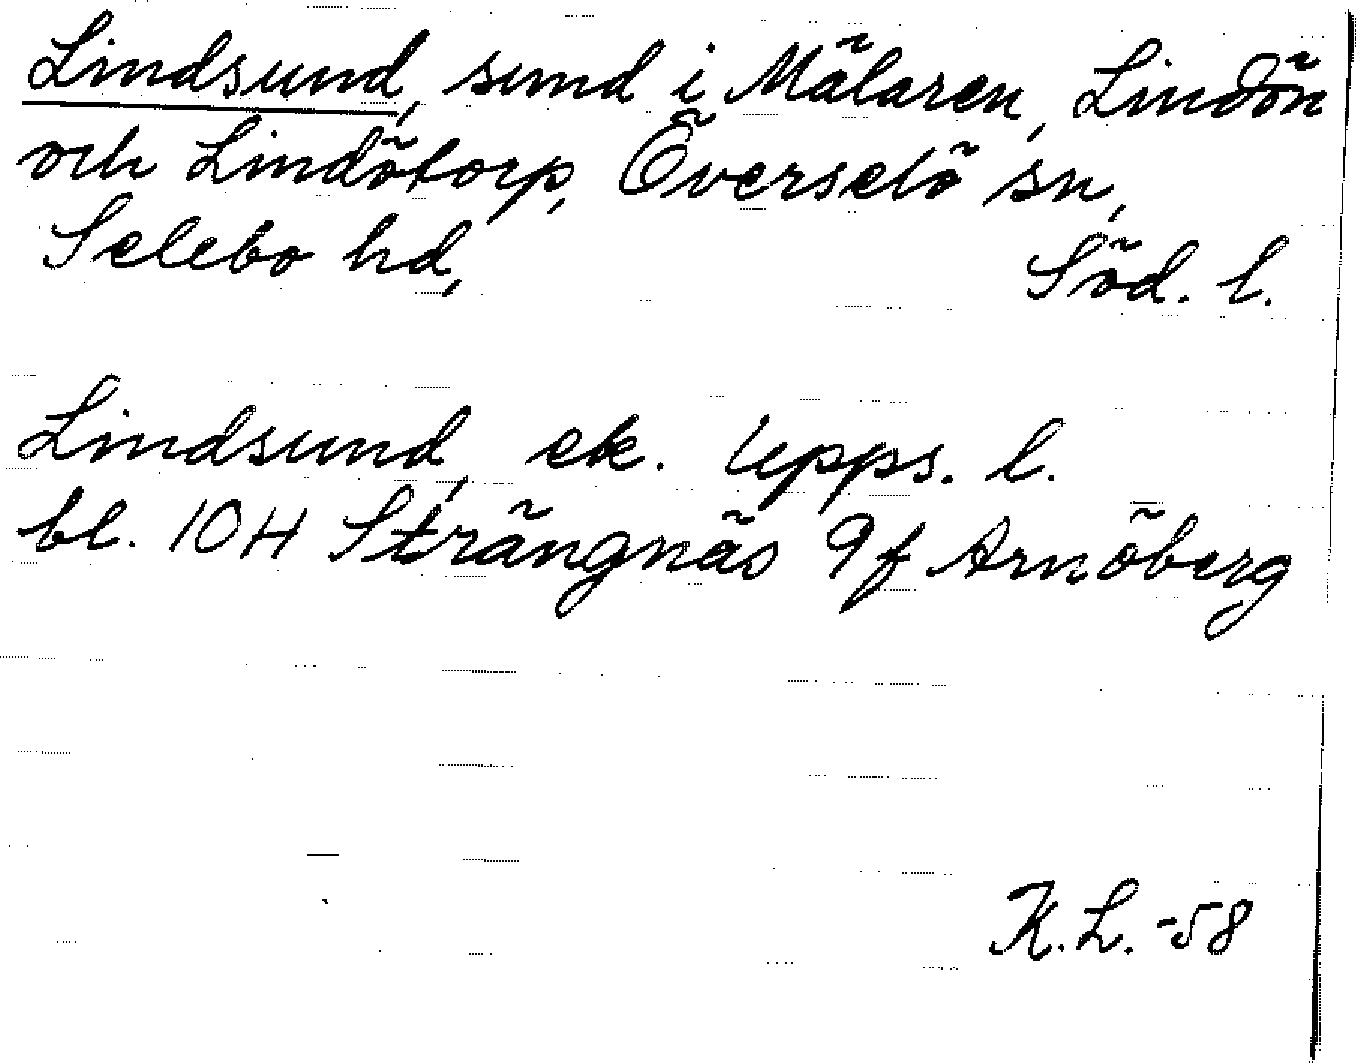 Lindsund, sund i Mälaren, Lindön
och Lindötorp, Överselö sn,
Selebo hd, Söd. l.
Lindsund, ek. Upps. l.
bl. 10H Strängnäs 9f Arnöberg
K.L. -58